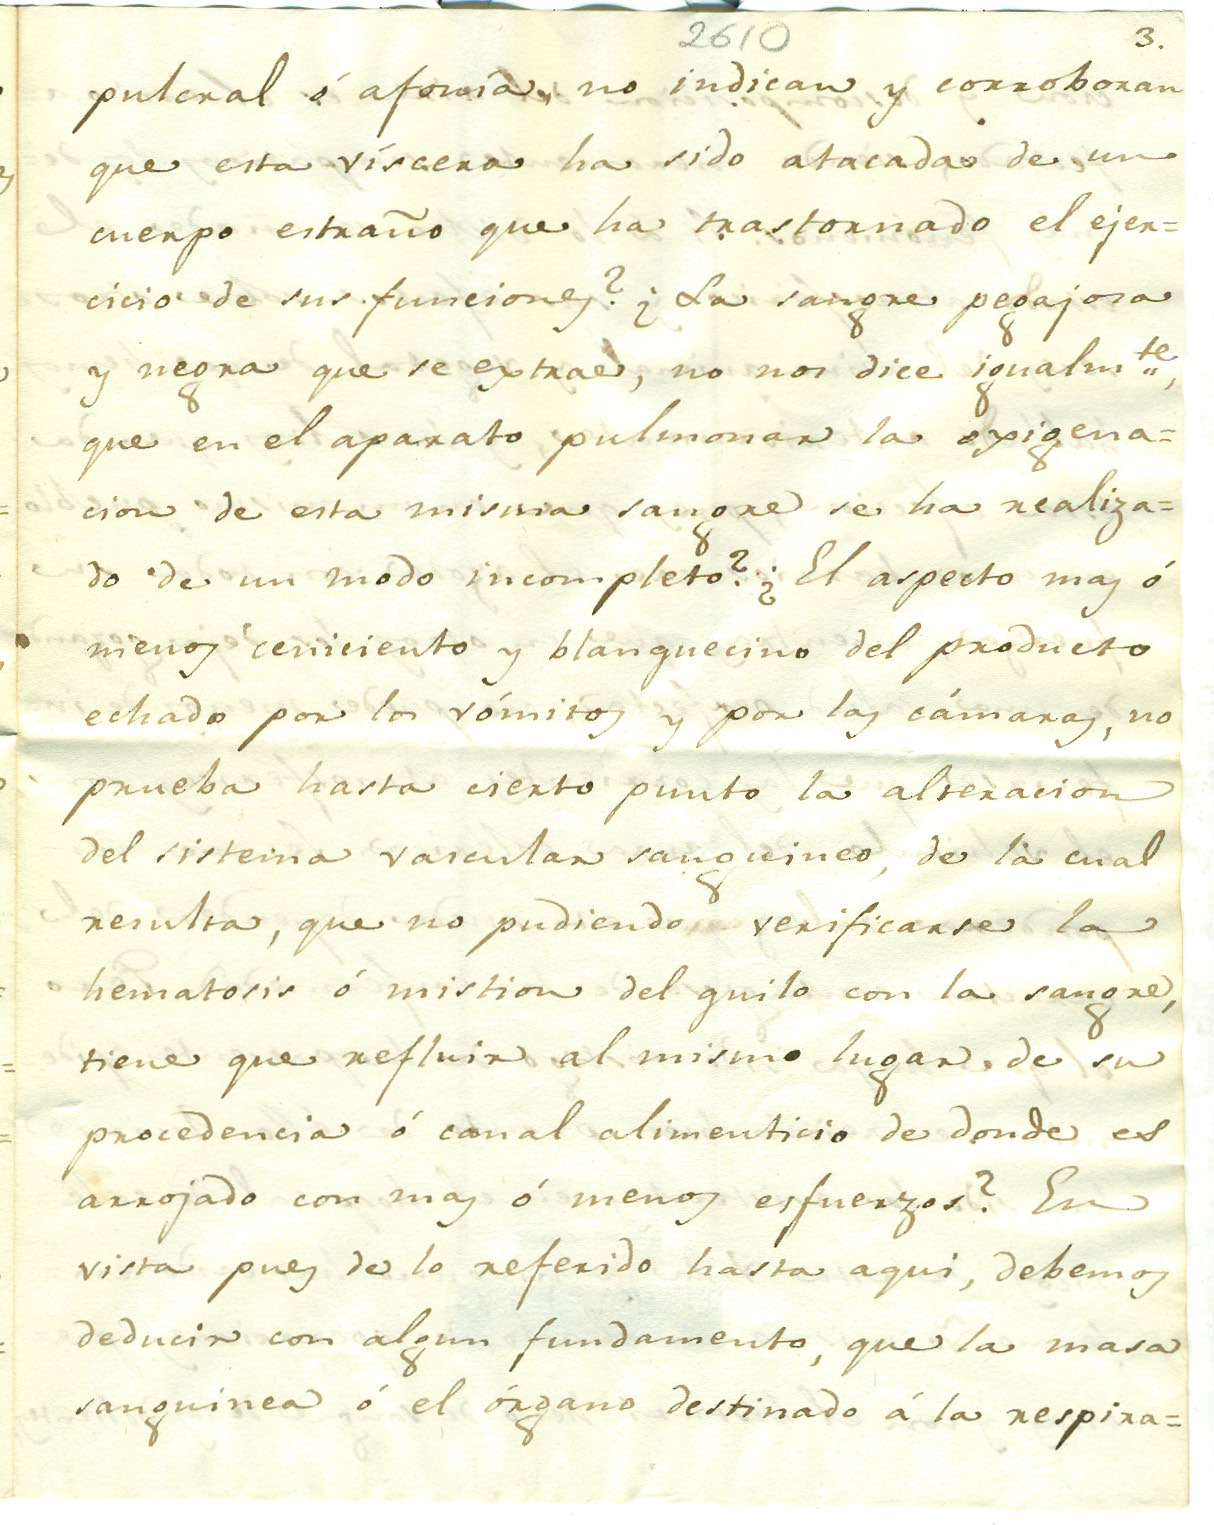 2610
3.
pulcral ó afonía, no indican y corroboran
que esta víscera ha sido atacada de un
cuerpo estraño que ha trastornado el ejer=
cicio de sus funciones? ¿La sangre pegajosa
y negra que se extrae, no nos dice igualmte,
que en el aparato pulmonar la oxigena=
cion de esta misma sangre se ha realiza=
do de un modo incompleto? ¿El aspecto mas ó
menos ceniciento y blanquecino del producto
echado por los vómitos y por las cámaras, no
prueba hasta cierto punto la alteracion
del sistema vascular sanguineo, de la cual
resulta, que no pudiendo verificarse la
hematosis ó mistion del quilo con la sangre,
tiene que refluir al mismo lugar de su
procedencia ó canal alimenticio de donde es
arrojado con mas ó menos esfuerzos? En
vista pues de lo referido hasta aqui, debemos
deducir con algun fundamento, que la masa
sanguinea ó el órgano destinado á la respira=